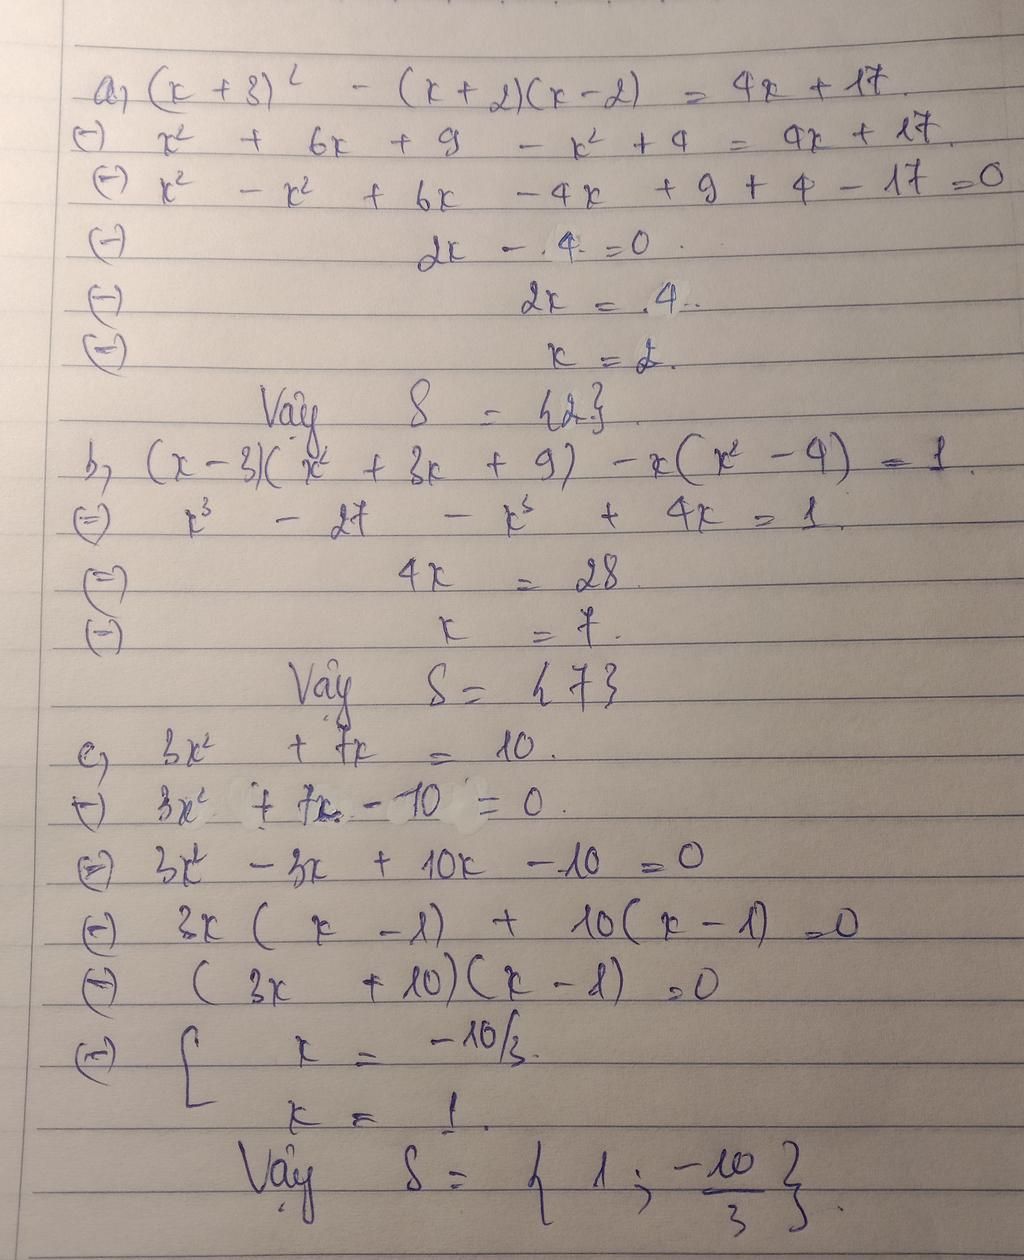 a, (x + 3)² - (x + 2)(x - 2) = 4x + 17.
(=) x² + 6x + 9 - x² + 4 = 4x + 17.
(=) x² - x² + 6x - 4x + 9 + 4 - 17 = 0
(=) 2x - 4 = 0.
(=) 2x = 4.
(=) x = 2.
Vậy S = {2}
b, (x - 3)(x² + 3x + 9) - x(x² - 4) = 1.
(=) x³ - 27 - x³ + 4x = 1.
(=) 4x = 28
(=) x = 7.
Vậy S = {7}
c, 3x² + 7x = 10.
(=) 3x² + 7x - 10 = 0.
(=) 3x² - 3x + 10x - 10 = 0
(=) 3x(x - 1) + 10(x - 1) = 0
(=) (3x + 10)(x - 1) = 0
(=) [ x = -10/3.
x = 1.
Vậy S = {1; -10/3}.